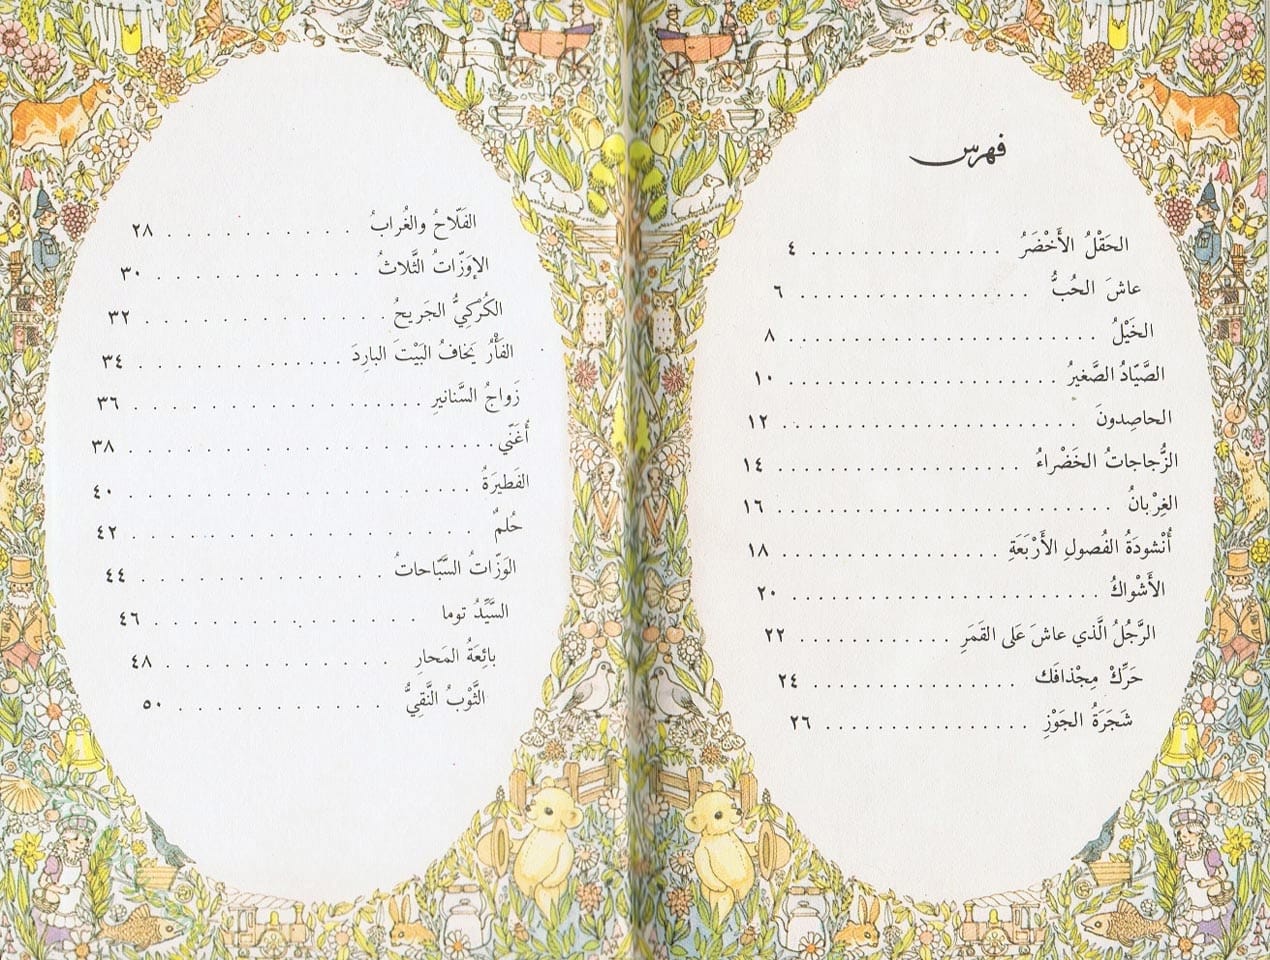 فهرس
الحَقْلُ الأَخْضَرُ . . . . . . . . . . . . . . . ٤
عاشَ الحُبُّ . . . . . . . . . . . . . . . . . ٦
الخَيْلُ . . . . . . . . . . . . . . . . . . . . . . ٨
الصَّيّادُ الصَّغيرُ . . . . . . . . . . . . . . . . . . . . ١٠
الحاصِدونَ . . . . . . . . . . . . . . . . . . . . . ١٢
الزُّجاجاتُ الخَضْراءُ . . . . . . . . . . . . . . . . . . ١٤
الغِرْبانُ . . . . . . . . . . . . . . . . . . . . . . . . . ١٦
أُنْشودَةُ الفُصولِ الأَرْبَعَةِ . . . . . . . . . . . . . . . . . ١٨
الأَشْواكُ . . . . . . . . . . . . . . . . . . . . . . . . ٢٠
الرَّجُلُ الَّذي عاشَ عَلى القَمَرِ . . . . . . . . . . . ٢٢
حَرِّكْ مِجْذافَك . . . . . . . . . . . . . . . . ٢٤
شَجَرَةُ الجَوْزِ . . . . . . . . . . . . . . . . ٢٦
الفَلّاحُ والغُرابُ . . . . . . . . . . . . ٢٨
الإوَزّاتُ الثَّلاثُ . . . . . . . . . . . . . ٣٠
الكُرْكِيُّ الجَريحُ . . . . . . . . . . . . . . . ٣٢
الفَأْرُ يَخافُ البَيْتَ البارِدَ . . . . . . . . . . . . . ٣٤
زَواجُ السَّنانيرِ . . . . . . . . . . . . . . . . . . . ٣٦
أُغَنّي . . . . . . . . . . . . . . . . . . . . . . ٣٨
الفَطيرَةُ . . . . . . . . . . . . . . . . . . . . ٤٠
حُلمٌ . . . . . . . . . . . . . . . . . . . . . ٤٢
الوَزّاتُ السَّبّاحاتُ . . . . . . . . . . . . . . ٤٤
السَّيِّدُ توما . . . . . . . . . . . . . . ٤٦
بائِعَةُ المَحارِ . . . . . . . . . . . . ٤٨
الثَّوْبُ النَّقِيُّ . . . . . . . . . . . . . ٥٠